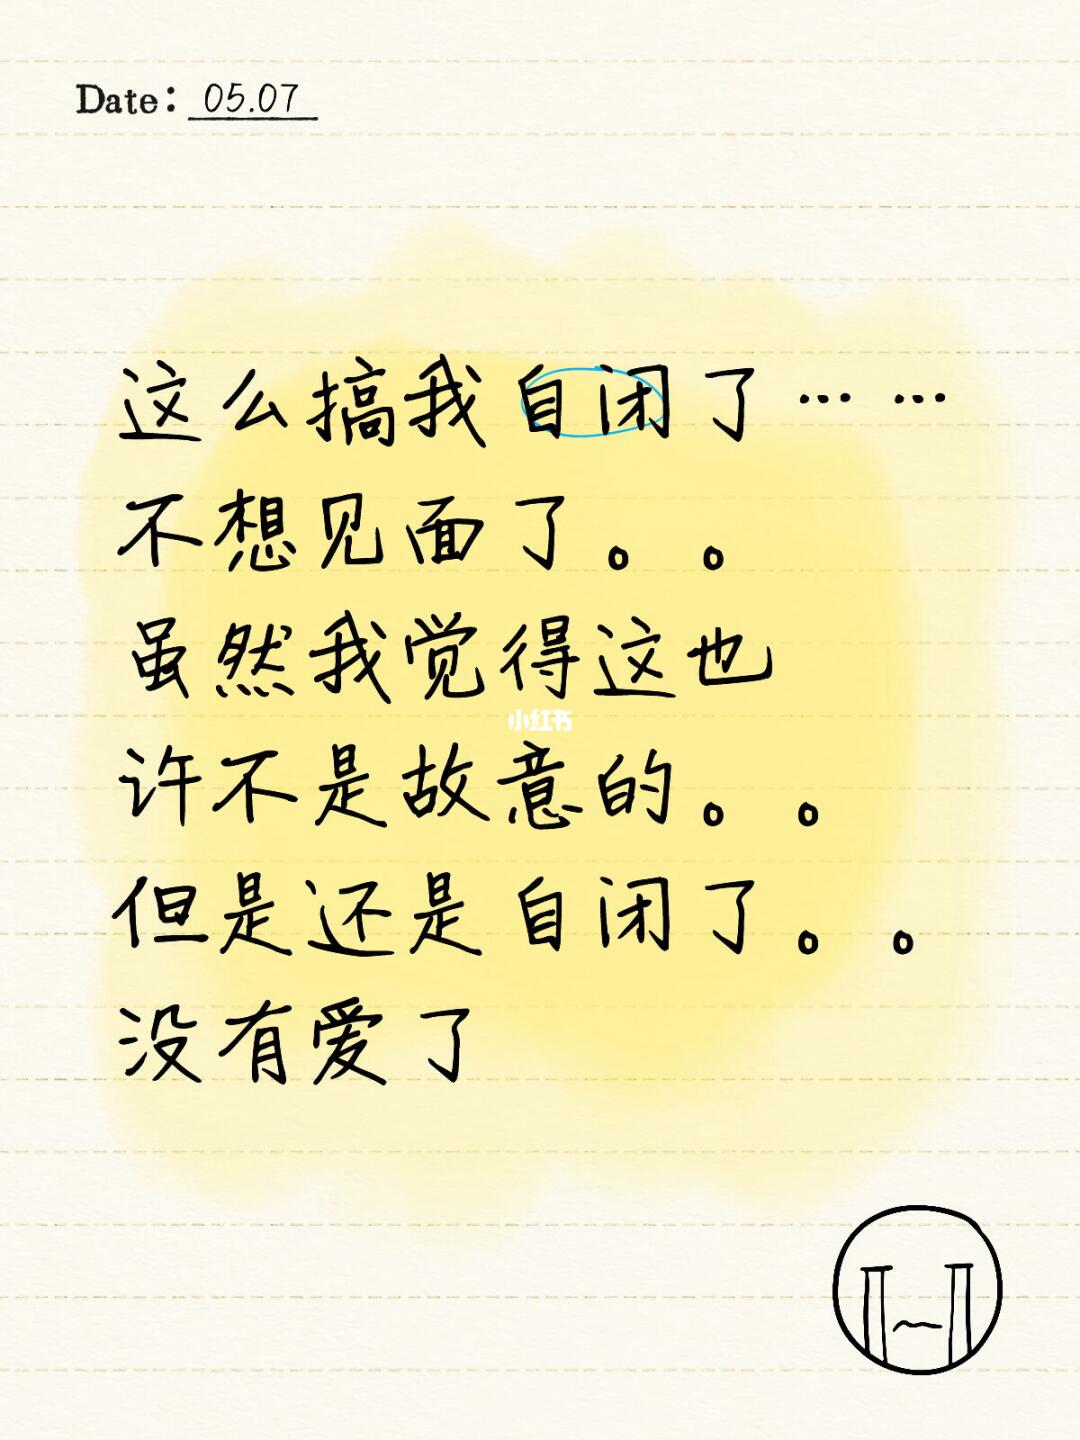 Date: 05.07
这么搞我自闭了……
不想见面了。。
虽然我觉得这也
小红书
许不是故意的。。
但是还是自闭了。。
没有爱了